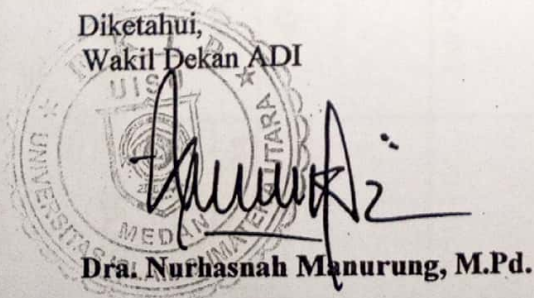 Diketahui,
Wakil Dekan ADI
UISU
UNIVERSITAS ISLAM SUMATERA UTARA
MEDAN
Dra. Nurhasnah Manurung, M.Pd.